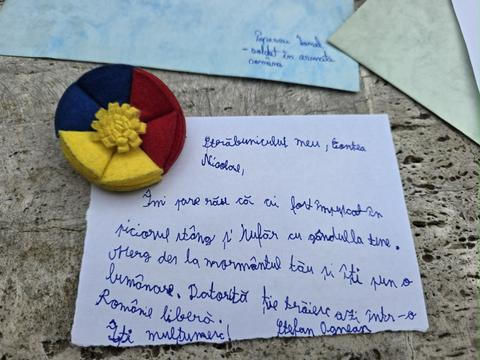 Popescu Ionel
- soldat în armata
română
Străbunicului meu, Contea
Nicolae,
Îmi pare rău că ai fost împușcat în
piciorul stâng și sufăr cu gândul la tine.
Merg des la mormântul tău și îți pun o
lumânare. Datorită ție trăiesc azi într-o
Românie liberă.
Îți mulțumesc! Ștefan Ognean